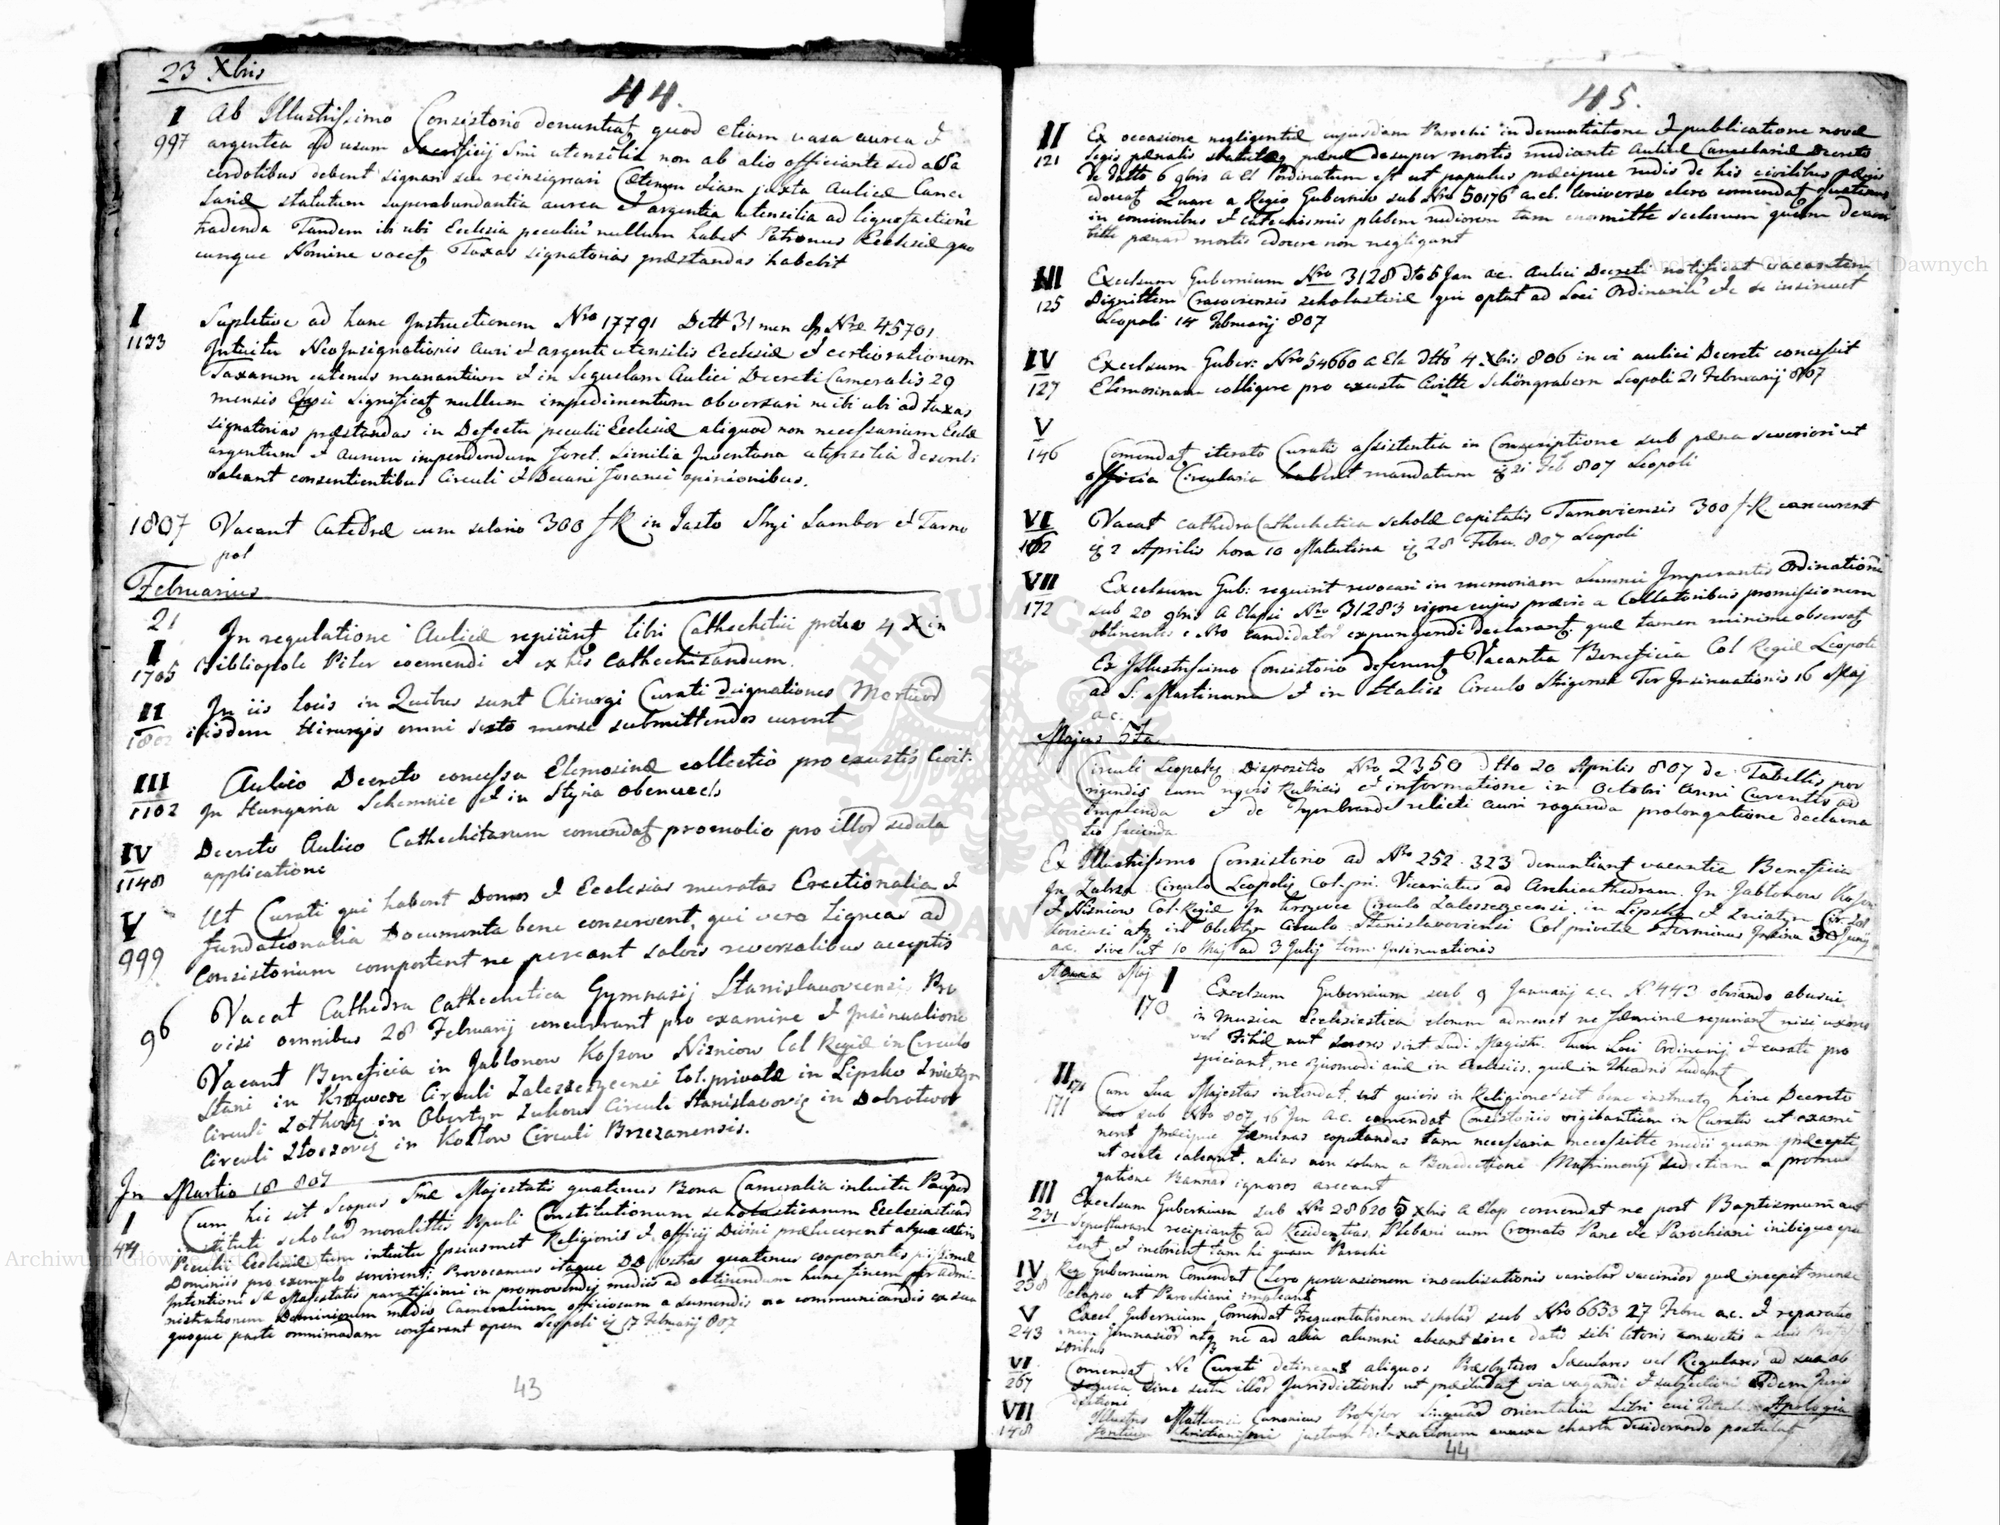 23 Xbris
44.
I Ab Illustrissimo Consistorio denuntiat quod etiam vasa aurea et
997 argentea ad usum Sacrificij Smi utensilia non ab alio officiante sed a Sa
cerdotibus debent signari seu reinsignari Cæterum etiam juxta Aulicæ Cance
lariæ statutum superabundantia aurea et argentea utensilia ad liquefactione
tradenda Tandem ibi ubi Ecclesia peculiu nullum habet Patronus Ecclesiæ quo
cunque Nomine vocet Taxas signatorias præstandas habebit
I Supletive ad hanc Instructionem Nro 17791 Dett 31 men Nræ 45701
1133 Intuitu Neo Insignationis auri et argenti utensilis Ecclesiæ et certiorationem
Taxarum eatenus manantium et in Sequelam Aulici Decreti Cameralis 29
mensis Elapsi significat nullum impedimentum obversari ne ibi ubi ad taxas
signatorias præstandas in Defectu peculii Ecclesiæ aliquod non necessarium Eccle
argentum et aurum impendendum foret. Similia Inventana utensilia
valeant consentientibus Circuli et Decani foranei opinionibus.
1807 Vacant Catedræ cum salario 300 f R in Jasto Stryi Sambor et Tarno
pol
Februarius
21 In regulatione Aulicæ repiriunt libri Cathechetii pretio 4 X in
I Bibliopole Piler coemendi et ex his Cathechizandum.
1705
II In iis locis in Quibus sunt Chirurgi Curati designationes Mortuor
1802 iisdem Hirurgis omni sexto mense submittendos curent
III Aulico Decreto concessa Elemosinæ collectio pro exustis Civit.
1102 In Hungaria Schemnic et in Styria Obenweels
IV Decreto Aulico Cathechitarum comendat promotio pro illor sedula
1148 applicatione
V Ut Curati qui habent Domos et Ecclesias muratas Erectionalia et
999 fundationalia Documenta bene conservent, qui vero ligneas ad
Consistorium comportent ne pereant salvis reversalibus acceptis
96 Vacat Cathedra Cathechetica Gymnasij Stanislavoviensi Pro
visi omnibus 28 Februarij concurrant pro examine et Insinuatione
Vacant Beneficia in Jablonow Kossow Nizniow Col Regiæ in Circulo
Stani in Krzywcze Circuli Zaleszczycensi Col. privatæ in Lipsko Sniatyn
Circuli Zolkovi in Obertyn Zukow Circuli Stanislavovi in Dobrotwor
Circuli Zloczovi in Kozlow Circuli Brzezanensis.
In Martio 18 807
I Cum hic sit Scopus Smæ Majestatis quatenus Bona Cameralia intuitu Pauper
44 instituti scholar moralittis Populi Constitutionum scholasticarum Ecclesiasticar
Peculii Ecclesiæ tum intuitu Ipsiusmet Religionis et officij Divini prælucerent atque cæteris
Dominiis pro exemplo servirent; Provocamus itaque quatenus cooperantes piissimæ
Intentioni Sæ Majestatis paratissimi in promovendis mediis ad obtinendum hunc finem per admi
nistrationem Dominiorum medio Cameralium officiosum a sumendis ac communicandis ex sua
quoque parte omnimodam conferant opem Leopoli 17 Februarij 807
43
45.
II Ex occasione negligentiæ cujusdam Parochi in denuntiatione et publicatione novæ
121 legis pænalis statutæ pænæ desuper mortis mediante Aulicæ Cancelariæ Decreto
de datto 6 9bris a El Ordinatum est ut populus præcipue rudis de his civilibus legis
edoceat Quare a Regio Gubernio sub Nro 50176 a.el. Universo clero comendat quatenus
in concionibus et Cathechismis plebem rudiorem tam enormitte scelerum quam de
bitte pænar mortis edocere non negligant
III Excelsum Gubernium Nro 3128 dto 6 Jan ac. Aulici Decreti notificat vacantem
125 Dignittem Cracoviensis scholasticæ qui optat ad Loci Ordinariu Se insinuet
Leopoli 14 Februarij 807
IV Excelsum Guber: Nro 54660 a Ela dtto 4 Xbris 806 in vi aulici Decreti concessit
127 Elemosinam colligere pro exusta Civitte Schöngrabern Leopoli 21 Februarij 807
V
146 Comendat iterato Curatis assistentia in Conscriptione sub pæna severiori ut
officia Circularia habent mandatum 21 Feb 807 Leopoli
VI Vacat Cathedra Cathechetica scholæ Capitalis Tarnoviensis 300 f. R. concurrent
162 2 Aprilis hora 10 Matutina 28 Febru. 807 Leopoli
VII Excelsum Gub: requirit revocari in memoriam Summi Imperantis Ordinatione
172 sub 20 9bris a Elapsi Nro 31283 vigore cujus præviæ a Collatoribus promissionem
obtinentes e Nro Candidator expungendi declarant quæ tamen minime observat
Ex Illustrissimo Consistorio deferunt Vacantia Beneficia Col Regiæ Leopoli
ad S. Martinum et in Stalicz Circulo Stryensi Ter Insinuationis 16 Maj
a.c.
Majus 5ta
Circuli Leopoli Dispositio Nro 2350 dtto 20 Aprilis 807 de Tabellis por
rigendis cum novis Rubricis et informatione in Octobri Anni Currentis ad
implenda et de relicti auri roganda prolongatione declara
tio facienda
Ex Illustrissimo Consistorio ad Nro 252. 323 denuntiant vacantia Beneficia
In Zubrza Circulo Leopoli Col. pri. Vicariatus ad Archicathedram. In Jablonow Kossow
et Nizniow Col. Regiæ In Krzywcze Circulo Zaleszczycensi. in Lipsko et Sniatyn Cir. Zol
kiewensi atq in Obertyn Circulo Stanislavoviensi Col privatæ Terminus Insinua 30 Junij
a.c. sive ut 10 Maj ad 3 Julij term: Insinuationis
Maj I Excelsum Gubernium sub 9 Januarij a.c. N 443 obviando abusui
170 in Musica Ecclesiastica elerum admonet ne fæminæ reperiant nisi uxores
vel Filiæ aut Sorores sint Ludi Magistri. Tum Loci Ordinarij et curati pro
spiciant, ne ejusmodi ariæ in Ecclesiis. quæ in Theatris ludant
II 171 Cum Sua Majestas intendat, ut quivis in Religione sit bene instructo hinc Decreto
171 suo sub Nro 807 16 Jan a.c. comendat Consistoriis vigilantiam in Curatis ut exami
nent præcipue fæminas copulandas tam necessaria necessitte medii quam præcepti
ut recte caleant. alias non solum a Benedictione Matrimonij sed etiam a promul
gatione Bannor ignaros arceant
III Excelsum Gubernium sub Nro 28620 5 Xbris a Elap comendat ne post Baptismum aut
231 sepulturam recipiant ad Residentias Plebani cum Cromato Pane de Parochiani inibique
et inebrient tam hi quam Parochi
IV Reg Gubernium Comendat Clero persvasionem inoculisationis variolar vaccinior quæ incepit mense
238 elapso ut Parochiani impleant
V Excel Gubernium Comendat Frequentationem scholar sub Nro 6653 27 Febru a.c. et reparatio
243 Gimnasior atq ne ad alia alumni abeant sine datis sibi literis consvetis a suis Profes
soribus
VI Comendat Ne Curati detineant aliquos Præsbyteros Sæculares vel Regulares ad sua ob
267 sequia sine scitu illor Jurisdictionis ut præcludat via vagandi et subjectioni eidem Juris
dictioni
VII Illustris Canonicus Profesor Linguar orientaliu Libri cui Titulus Apologia
148 Christianismi justam detaxationem annexa charta desiderando postulat
44
Archiwum Główne Akt Dawnych
Archiwum Główne Akt Dawnych
ARCHIWUM GŁÓWNE AKT DAWNYCH